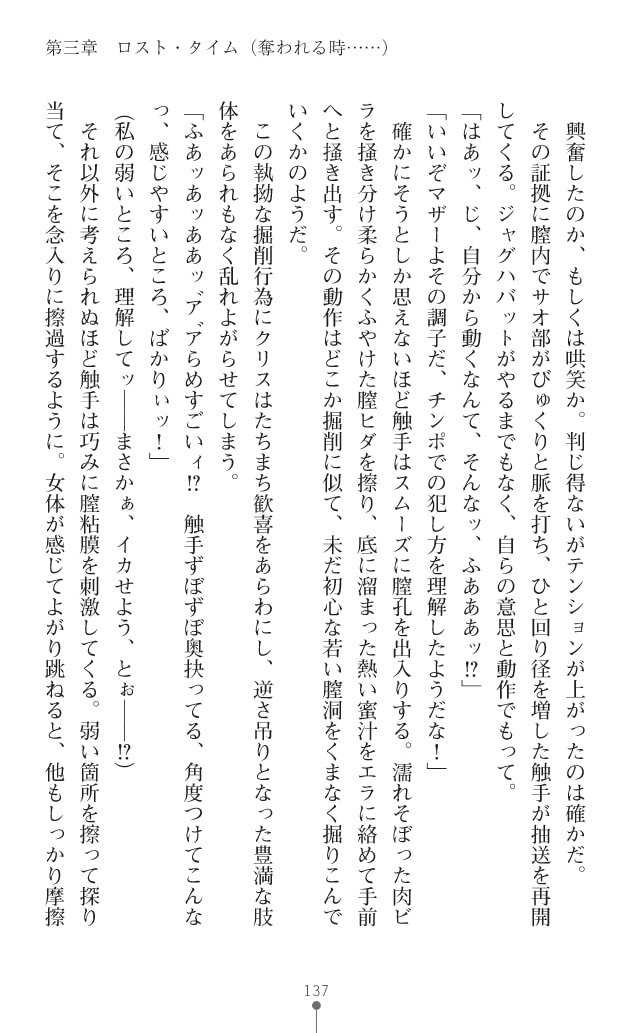 第三章　ロスト・タイム（奪われる時……）
興奮したのか、もしくは哄笑か。判じ得ないがテンションが上がったのは確かだ。
その証拠に膣内でサオ部がびゅくりと脈を打ち、ひと回り径を増した触手が抽送を再開
してくる。ジャグハバットがやるまでもなく、自らの意思と動作でもって。
「はあッ、じ、自分から動くなんて、そんなッ、ふああぁッ!?」
「いいぞマザーよその調子だ、チンポでの犯し方を理解したようだな！」
確かにそうとしか思えないほど触手はスムーズに膣孔を出入りする。濡れそぼった肉ビ
ラを掻き分け柔らかくふやけた膣ヒダを擦り、底に溜まった熱い蜜汁をエラに絡めて手前
へと掻き出す。その動作はどこか掘削に似て、未だ初心な若い膣洞をくまなく掘りこんで
いくかのようだ。
この執拗な掘削行為にクリスはたちまち歓喜をあらわにし、逆さ吊りとなった豊満な肢
体をあられもなく乱れよがらせてしまう。
「ふあッあッああッ゛ア゛アらめすごいィ!?　触手ずぼずぼ奥抉ってる、角度つけてこんな
っ、感じやすいところ、ばかりぃッ！」
（私の弱いところ、理解してッ――まさかぁ、イカせよう、とぉ――!?）
それ以外に考えられぬほど触手は巧みに膣粘膜を刺激してくる。弱い箇所を擦って探り
当て、そこを念入りに擦過するように。女体が感じてよがり跳ねると、他もしっかり摩擦
137